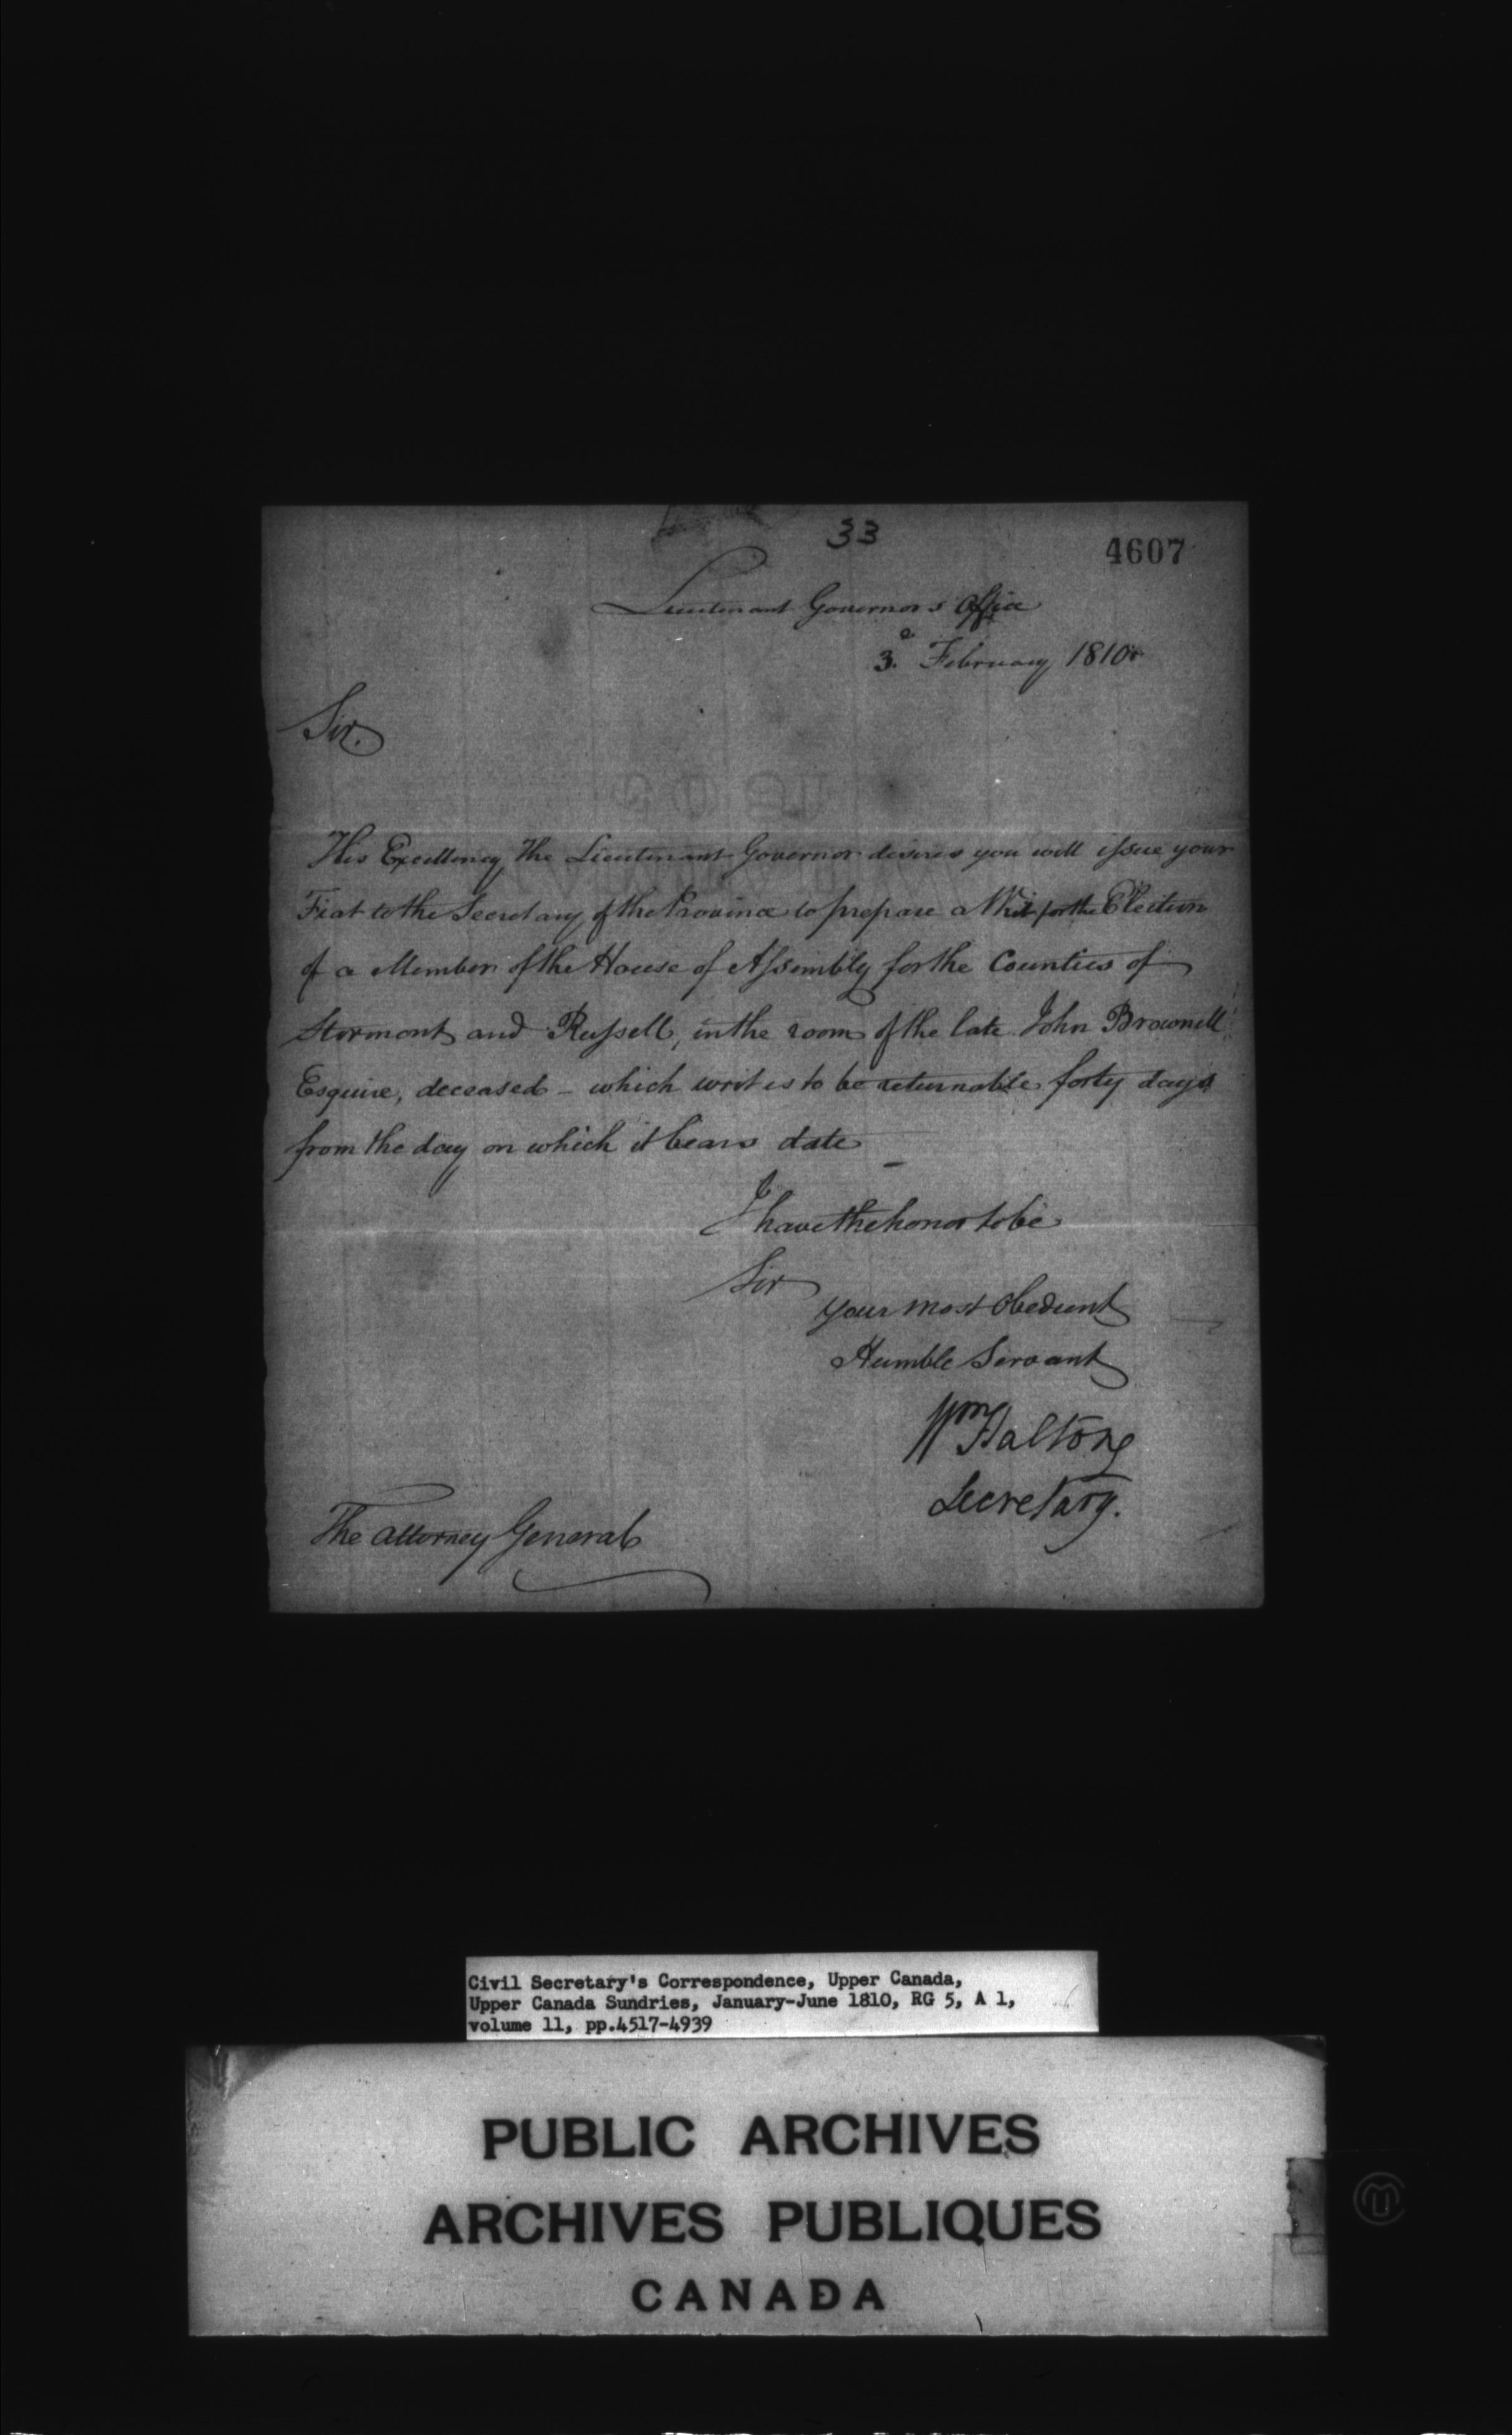 33
4607
Lieutenant Governor's Office
3.d February 1810.
Sir.
His Excellency The Lieutenant Governor desires you will issue your
Fiat to the Secretary of the Province to prepare a Writ for the Election
of a Member of the House of Assembly for the Counties of
Stormont and Russell, in the room of the late John Brownell
Esquire, deceased – which writ is to be returnable forty days
from the day on which it bears date –
I have the honor to be
Sir
your most Obedient
Humble Servant
Wm Halton
Secretary.
The Attorney General
Civil Secretary's Correspondence, Upper Canada,
Upper Canada Sundries, January-June 1810, RG 5, A 1,
volume 11, pp.4517-4939
PUBLIC ARCHIVES
ARCHIVES PUBLIQUES
CANADA